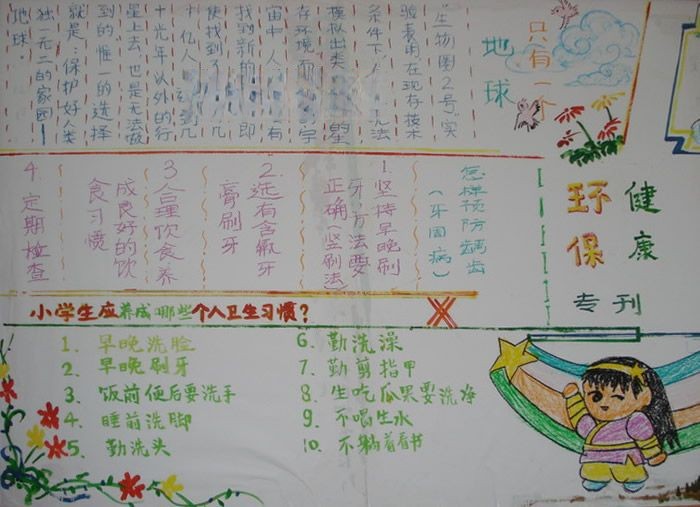 只有一个
地球
"生物圈2号"实
验表明在现存技术
条件下
模拟出类 的生
存环境而 宇
宙中人 有
找到新的 即
使找到了 几
十亿人 几
十光年以外的行
星上去,也是无法做
到的,惟一的选择
就是:保护好人类
独一无二的家园—
地球。
健康
环保
专刊
怎样预防龋齿
(牙周病)
1.坚持早晚刷
牙方法要
正确(竖刷法)
2.选有含氟牙
膏刷牙
3合理饮食养
成良好的饮
食习惯
4.定期检查
小学生应养成哪些个人卫生习惯?
1. 早晚洗脸
2. 早晚刷牙
3. 饭前便后要洗手
4. 睡前洗脚
5. 勤洗头
6. 勤洗澡
7. 勤剪指甲
8. 生吃瓜果要洗净
9. 不喝生水
10. 不躺着看书